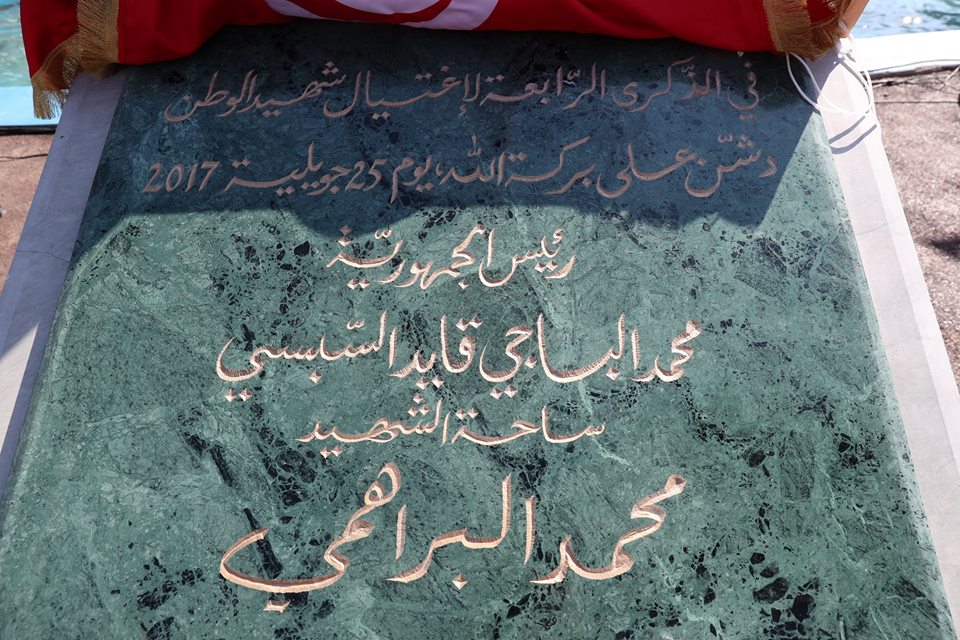 في الذّكرى الرّابعة لإغتيال شهيد الوطن
دشّن على بركة الله، يوم 25 جويلية 2017
رئيس الجمهوريّة
محمد الباجي قايد السّبسي
ساحة الشهيد
محمد البراهمي